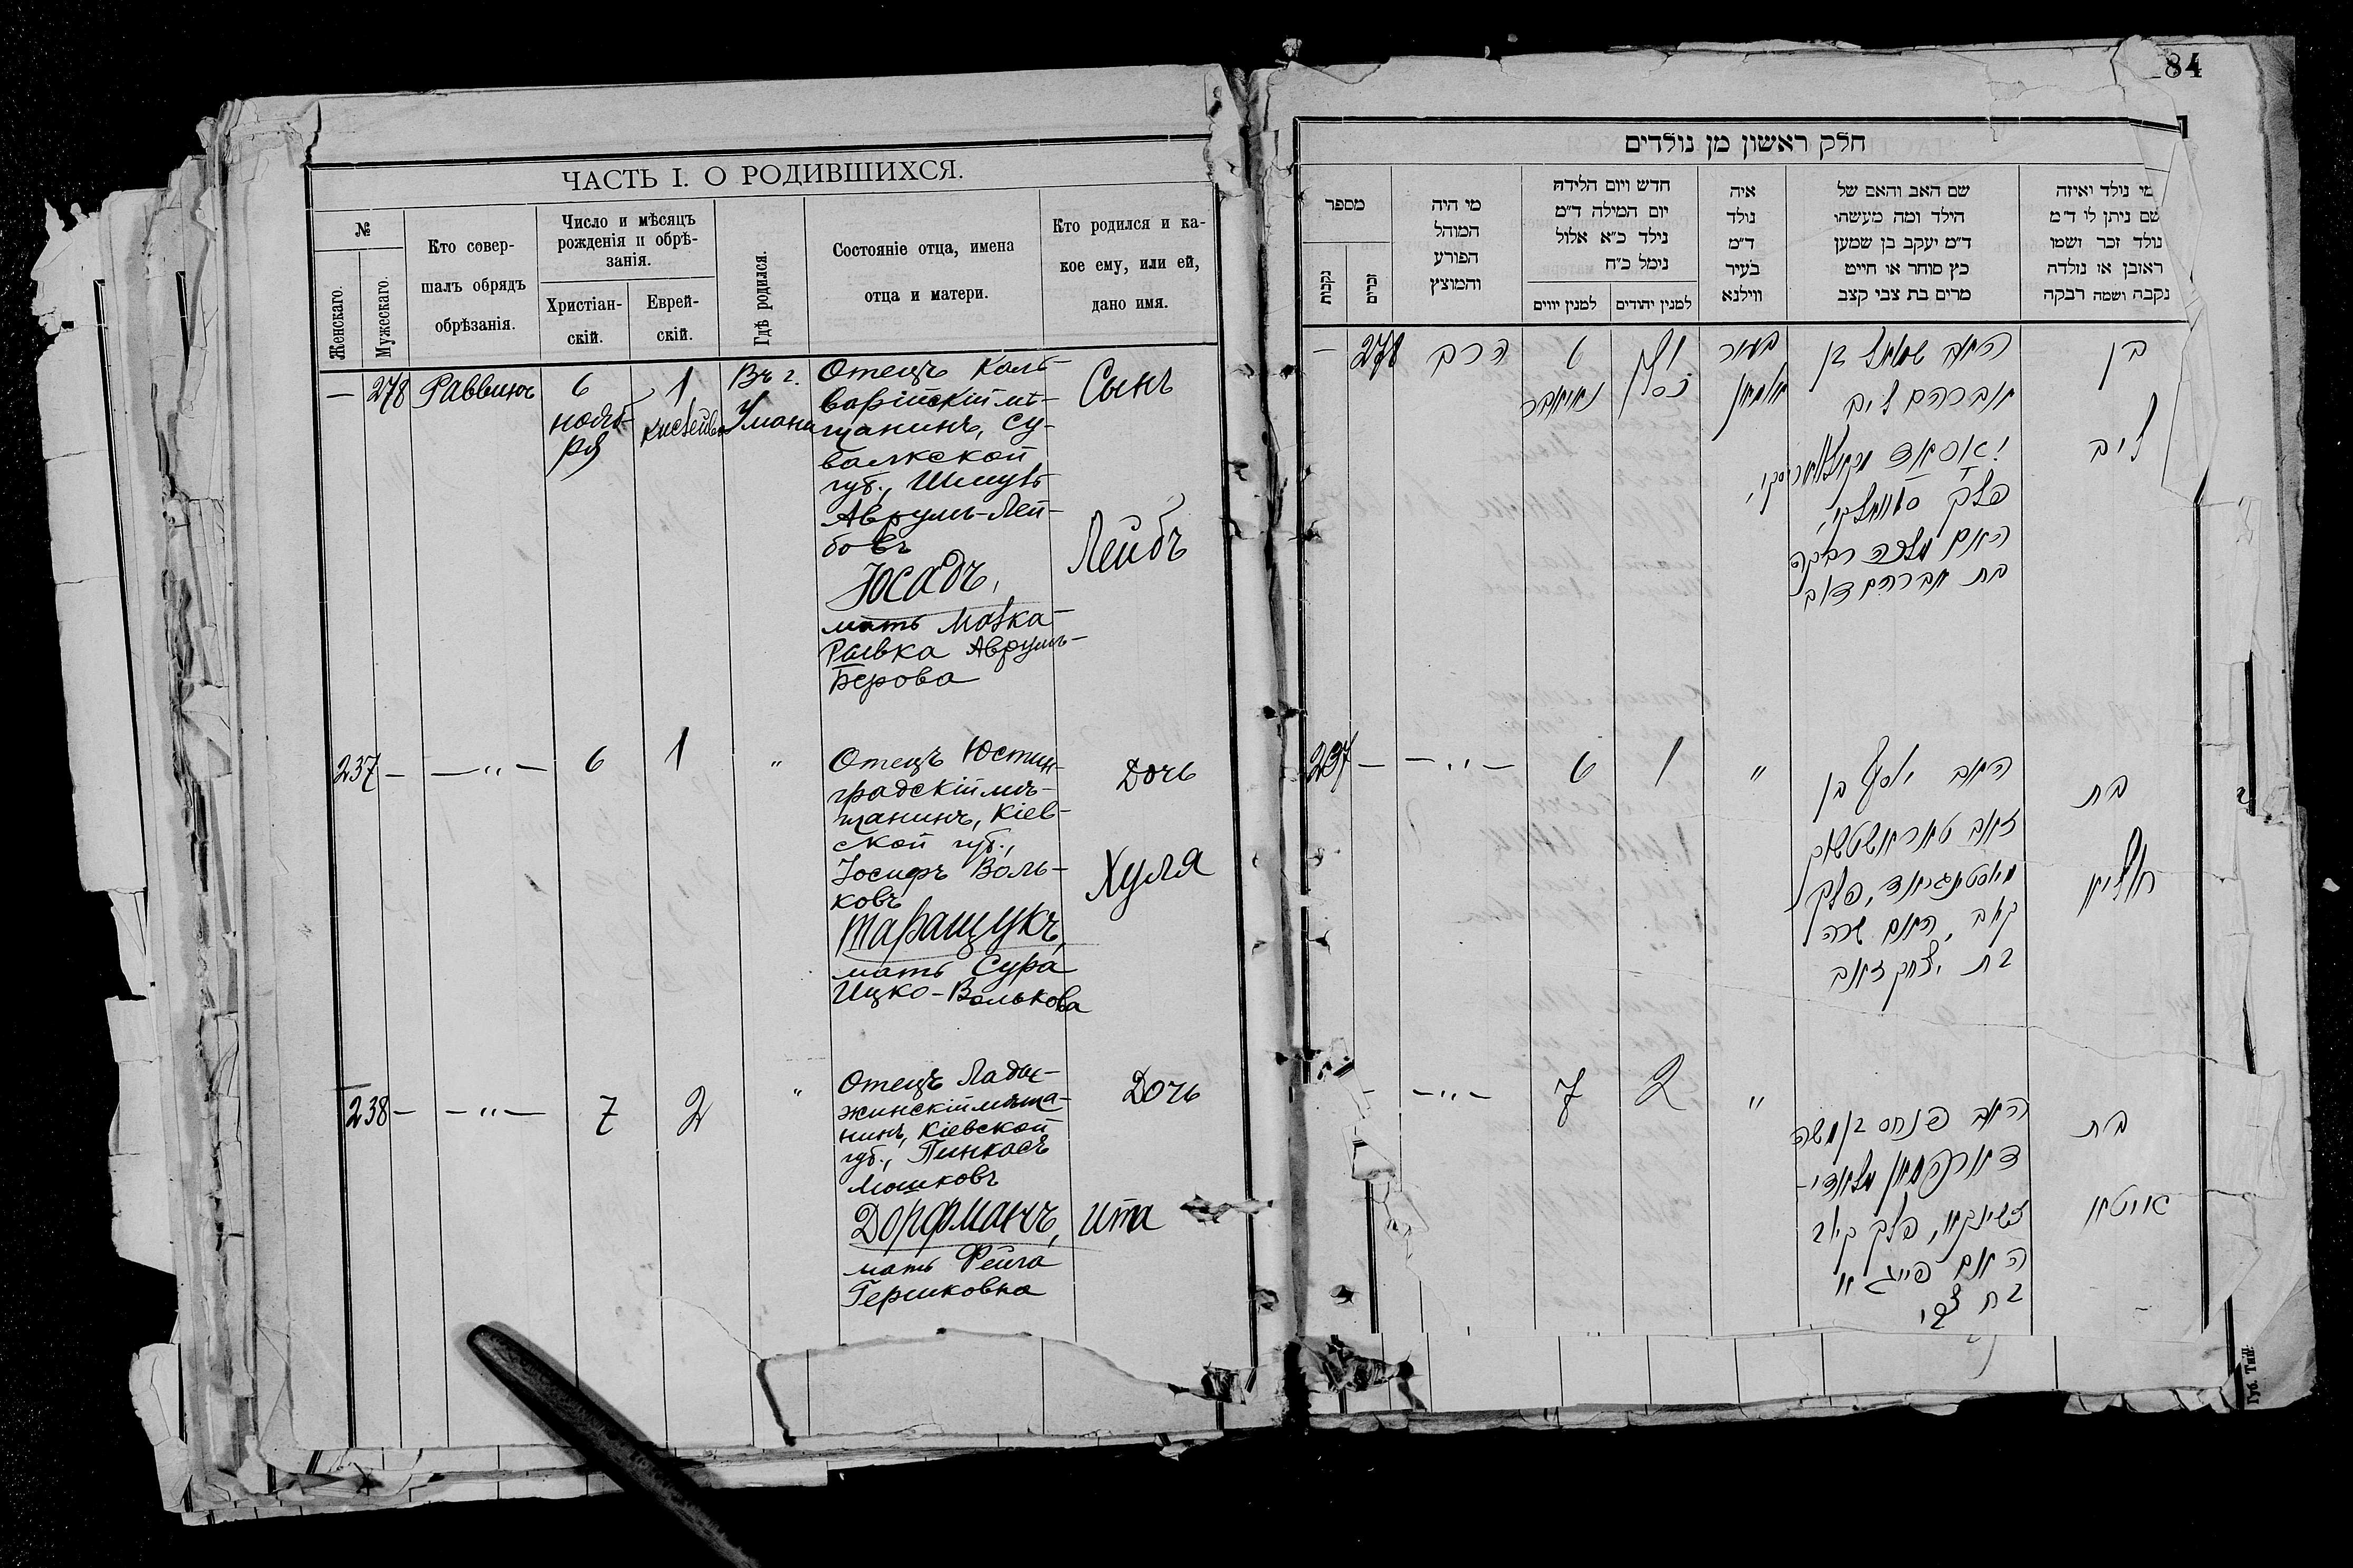 ЧАСТЬ I. О РОДИВШИХСЯ.
№
Женскаго.
Мужескаго.
Кто совер-
шалъ обрядъ
обрѣзанія.
Число и мѣсяцъ
рожденія и обрѣ-
занія.
Христіан-
скій.
Еврей-
скій.
Гдѣ родился.
Состояніе отца, имена
отца и матери.
Кто родился и ка-
кое ему, или ей,
дано имя.
— 278 Раввинъ
6
нояб-
ря
1
Кислейва
Въ г.
Умани
Отецъ Каль-
варійскій мѣ-
щанинъ, Су-
валкской
губ., Шмуль
Аврумъ-Лей-
бовъ
Юсадъ,
мать Малка-
Ривка Аврумъ-
Берова
Сынъ
Лейбъ
237 — —"— 6 1 "
Отецъ Юстин-
градскій мѣ-
щанинъ, Кіев-
ской губ.,
Іосифъ Воль-
ковъ
Таращукъ,
мать Сура
Ицко-Волькова
Дочь
Хуля
238 — —"— 7 2 "
Отецъ Лады-
жинскій мѣща-
нинъ, Кіевской
губ., Пинкасъ
Мошковъ
Дорфманъ,
мать Фейга
Гершковна
Дочь
Ита
84
חלק ראשון מן נולדים
מספר
נקבות
זכרים
מי היה
המוהל
הפורע
והמוצץ
חדש ויום הלידה
יום המילה ד״מ
נילד כ״א אלול
נימל כ״ח
למנין יווים
למנין יהודים
איה
נולד
ד״מ
בעיר
ווילנא
שם האב והאם של
הילד ומה מעשהו
ד״מ יעקב בן שמעון
כץ סוחר או חייט
מרים בת צבי קצב
מי נילד ואיזה
שם ניתן לו ד״מ
נולד זכר ושמו
ראובן או נולדה
נקבה ושמה רבקה
— 278 הרב
6
נאיאבר
כסלו
בעיר
אומאן
האב שמואל בן
אברהם ליב
פלך סואוואלקי,
האם מלכה רבקה
בת אברהם דוב
בן
ליב
237 — —"— 6 1 "
האב יוסף בן
זאב טאראשטשוק
פלך
קיוב, האם שרה
בת יצחק זאב
בת
חוליא
— —"— 7 2 "
האב פנחס בן משה
דארפמאן מלאדי-
זשינקא, פלך קיוב
האם פייגא
בת צבי
בת
איטא
Губ. Тип.